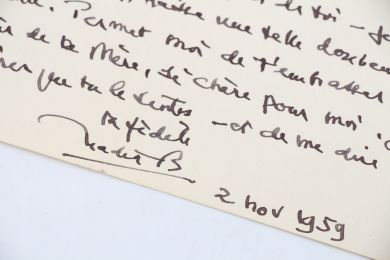 toi -
une telle
Permet moi de t'embrasser
de ta Mère, si chère pour moi
que tu le sentes - et de me dire
ta fidèle
Nadia B
2 nov 1959